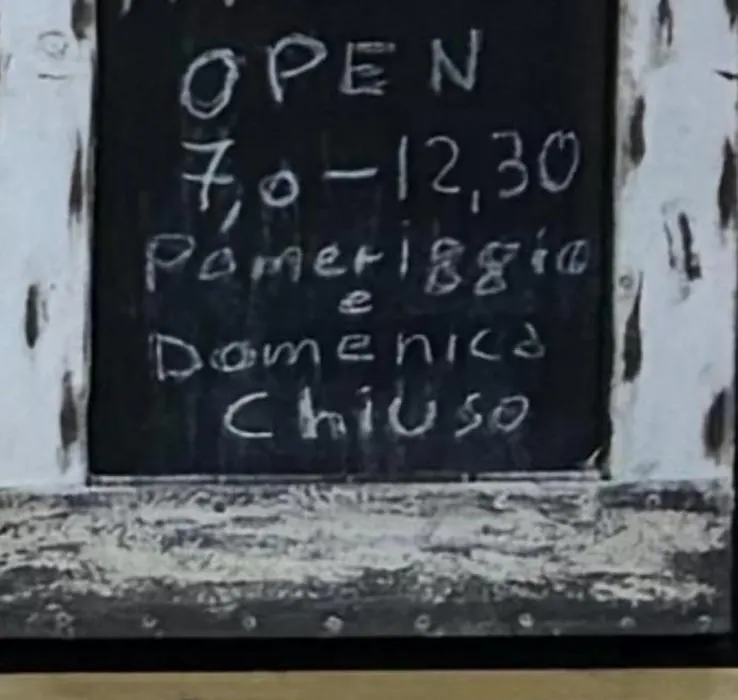 OPEN
7,0-12,30
Pomeriggio
e
Domenica
Chiuso